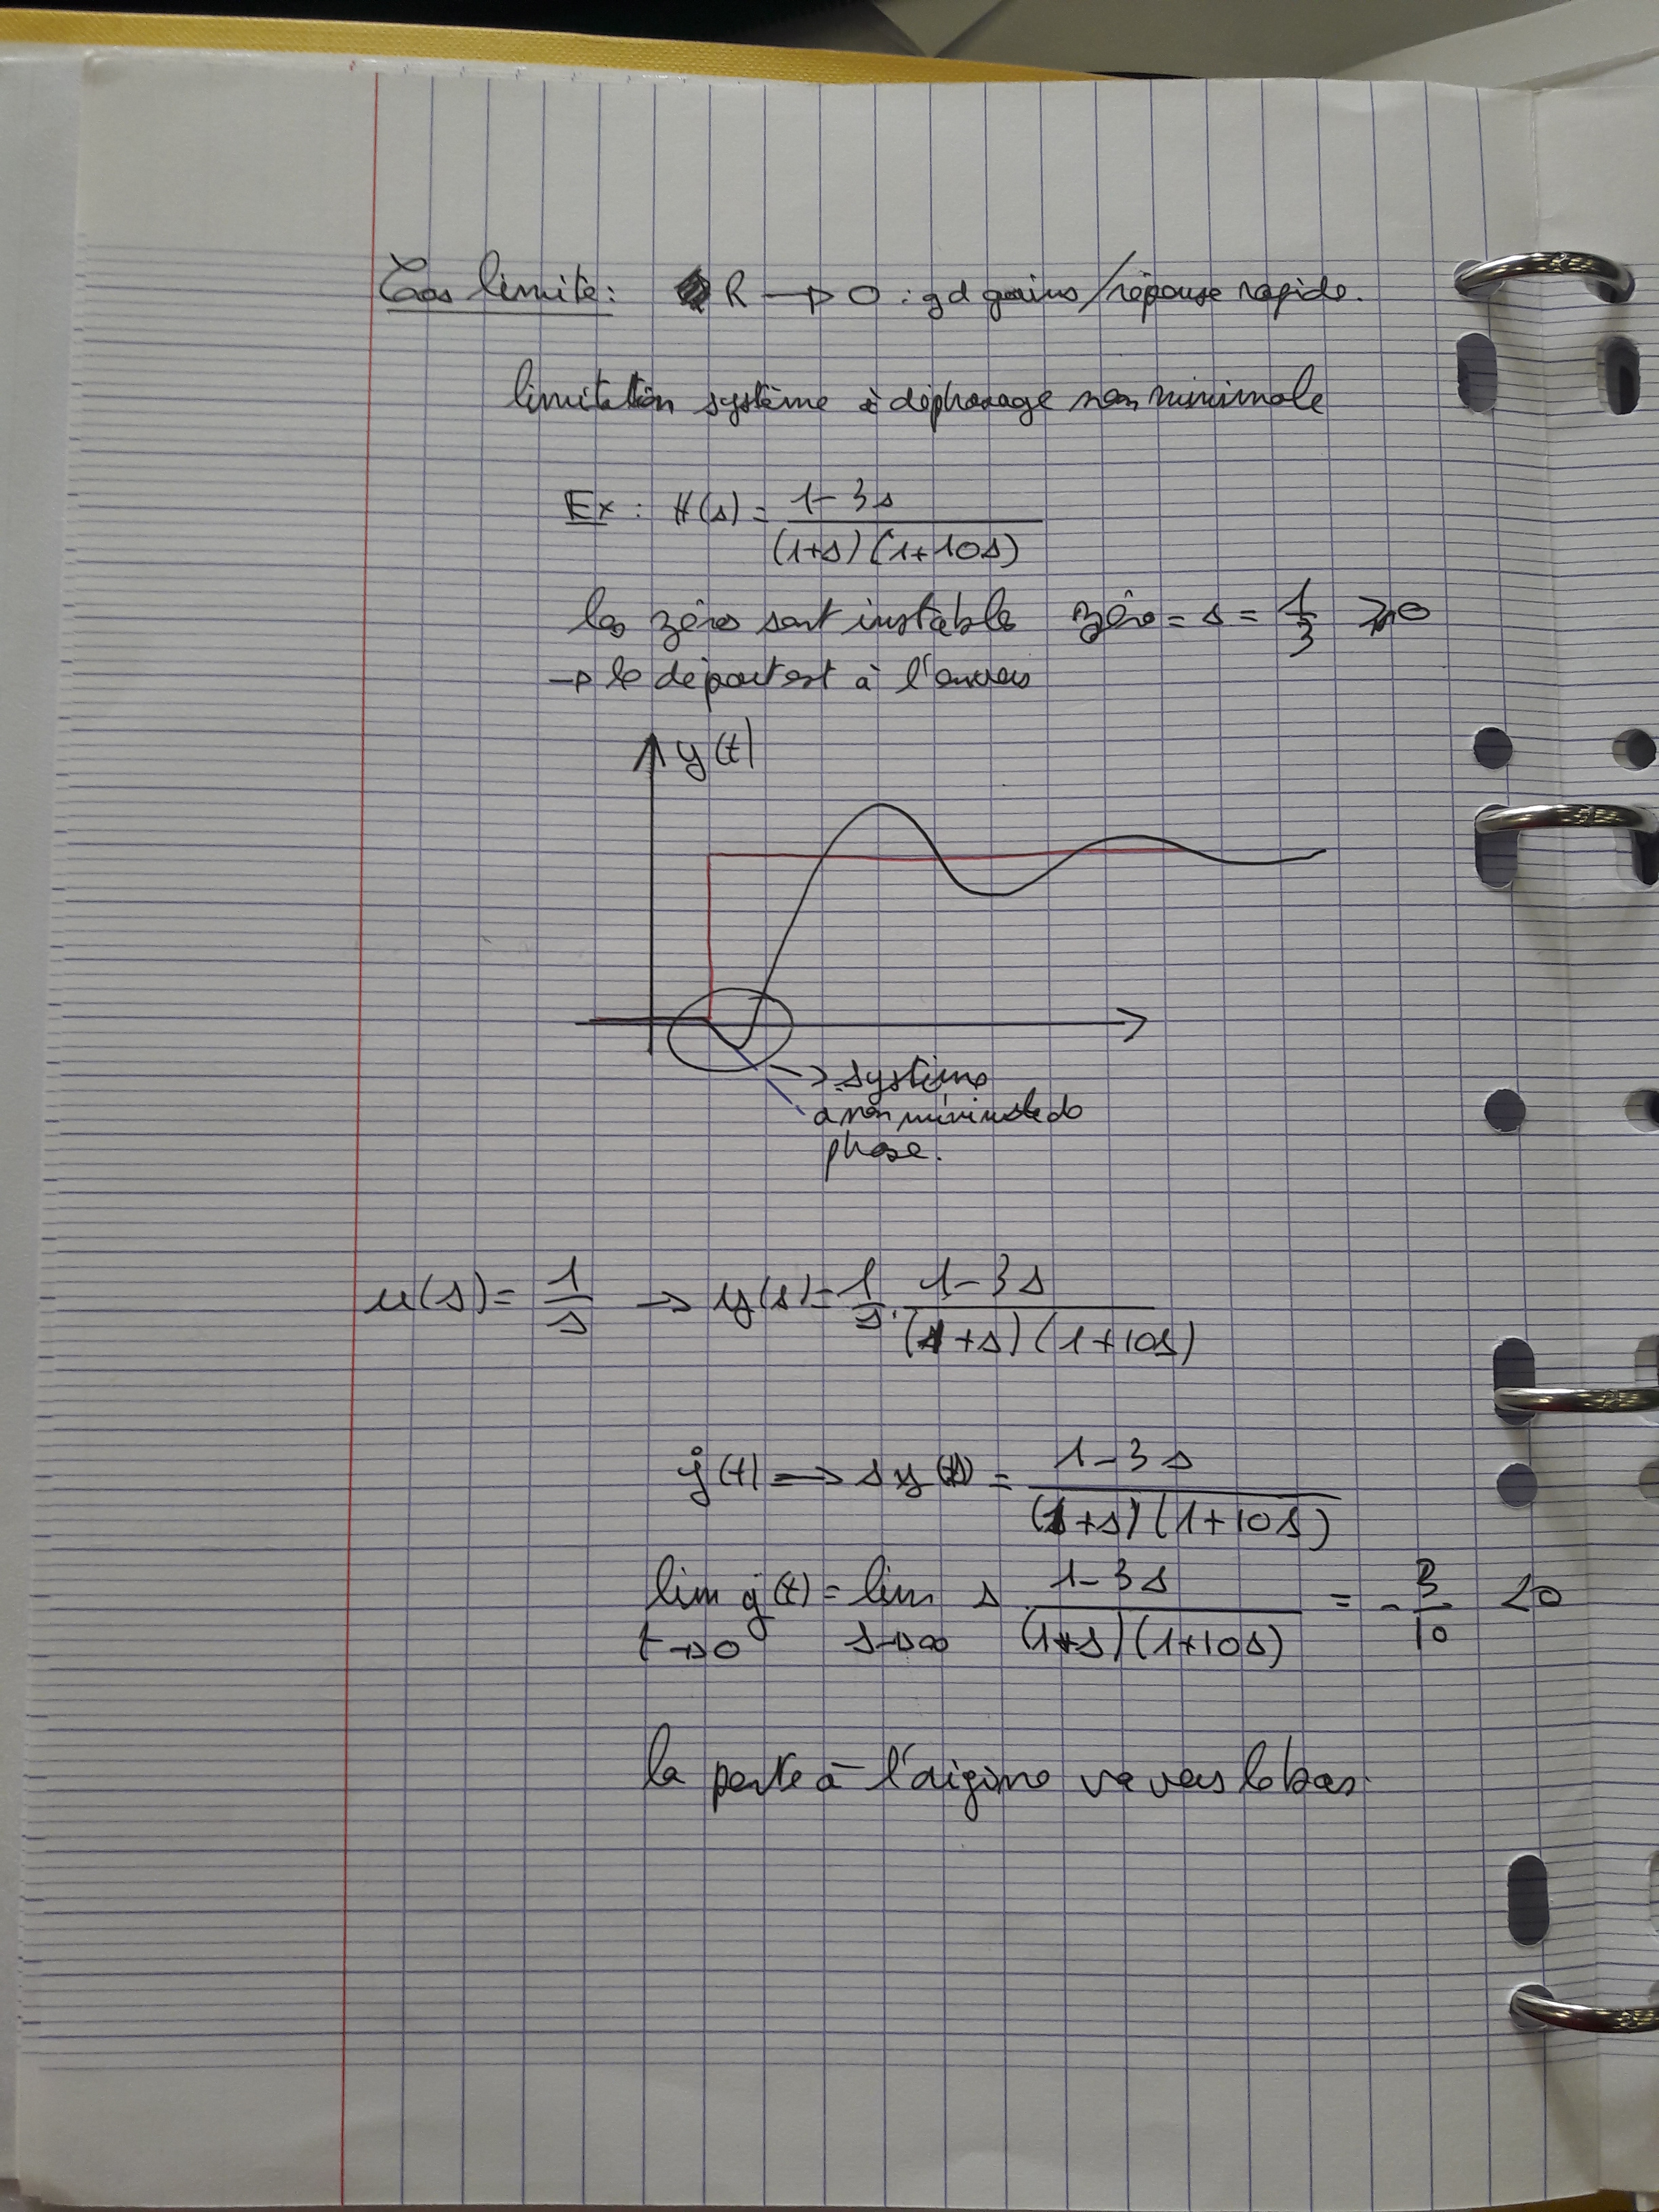 Cas limite: R → 0 : gd gains/réponse rapide.
limitation système à déphasage non minimale
Ex : H(s) = (1-3s)/((1+s)(1+10s))
les zéros sont instable zéro = s = 1/3 ≥ 0
→ le départ est à l'envers
y(t)
→ système
a non minimale de
phase.
u(s) = 1/s → y(s) = 1/s · (1-3s)/((1+s)(1+10s))
ẏ(t) ⇒ s y(s) = (1-3s)/((1+s)(1+10s))
lim t→0 ẏ(t) = lim s→∞ s (1-3s)/((1+s)(1+10s)) = -3/10 <0
la pente à l'origine va vers le bas.